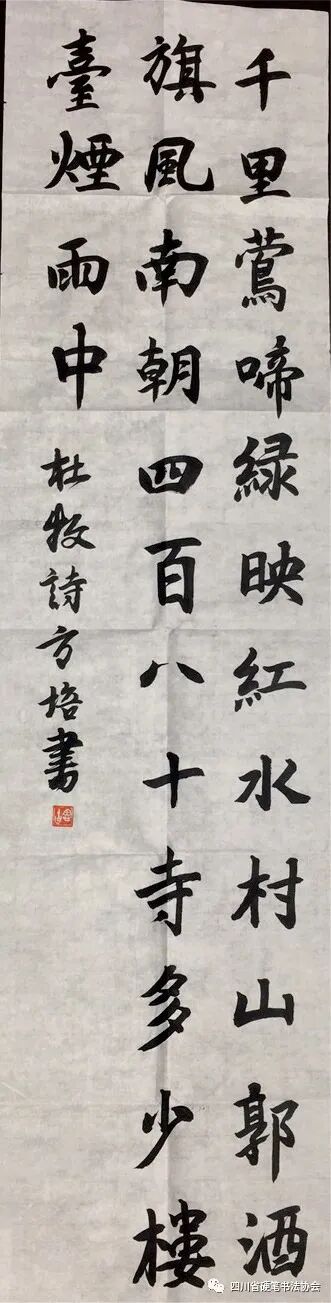 千里鶯啼緑映紅水村山郭酒
旗風南朝四百八十寺多少樓
臺煙雨中
杜牧詩方培書
四川省硬笔书法协会